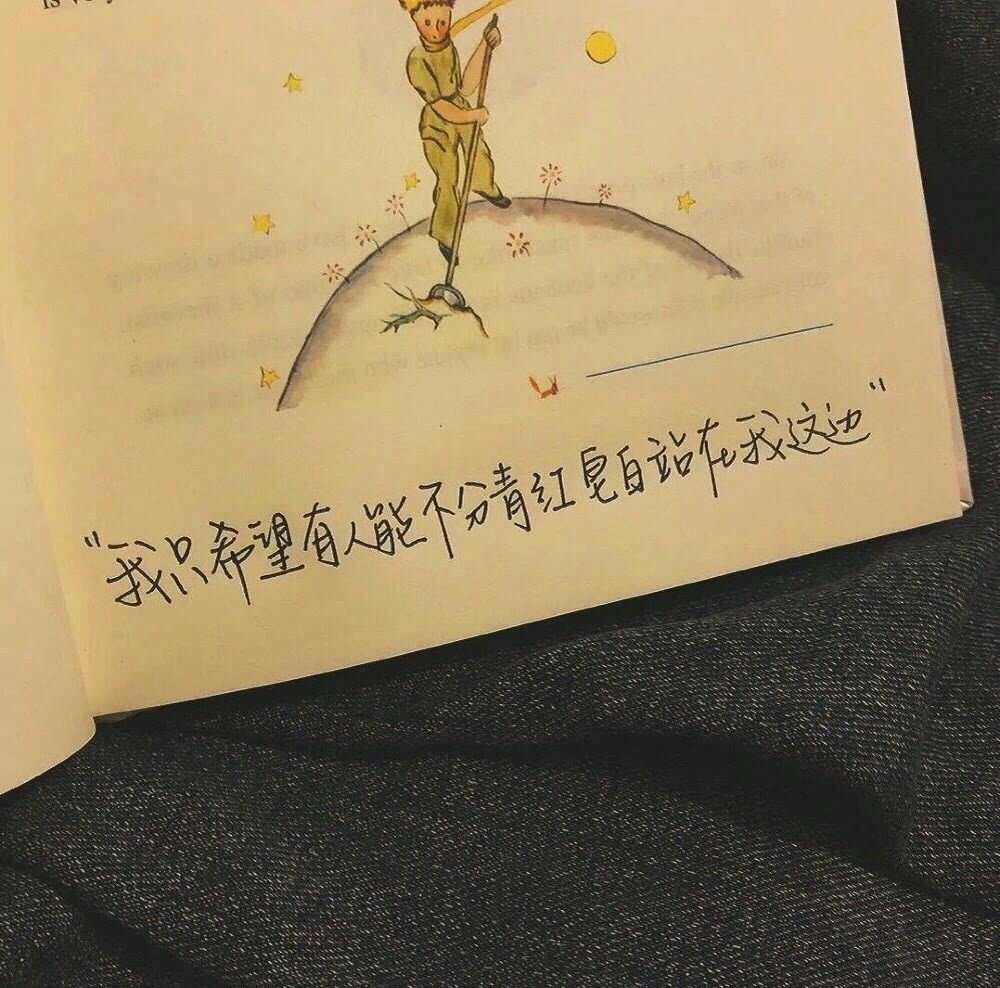 is ve
“我只希望有人能不分青红皂白站在我这边”